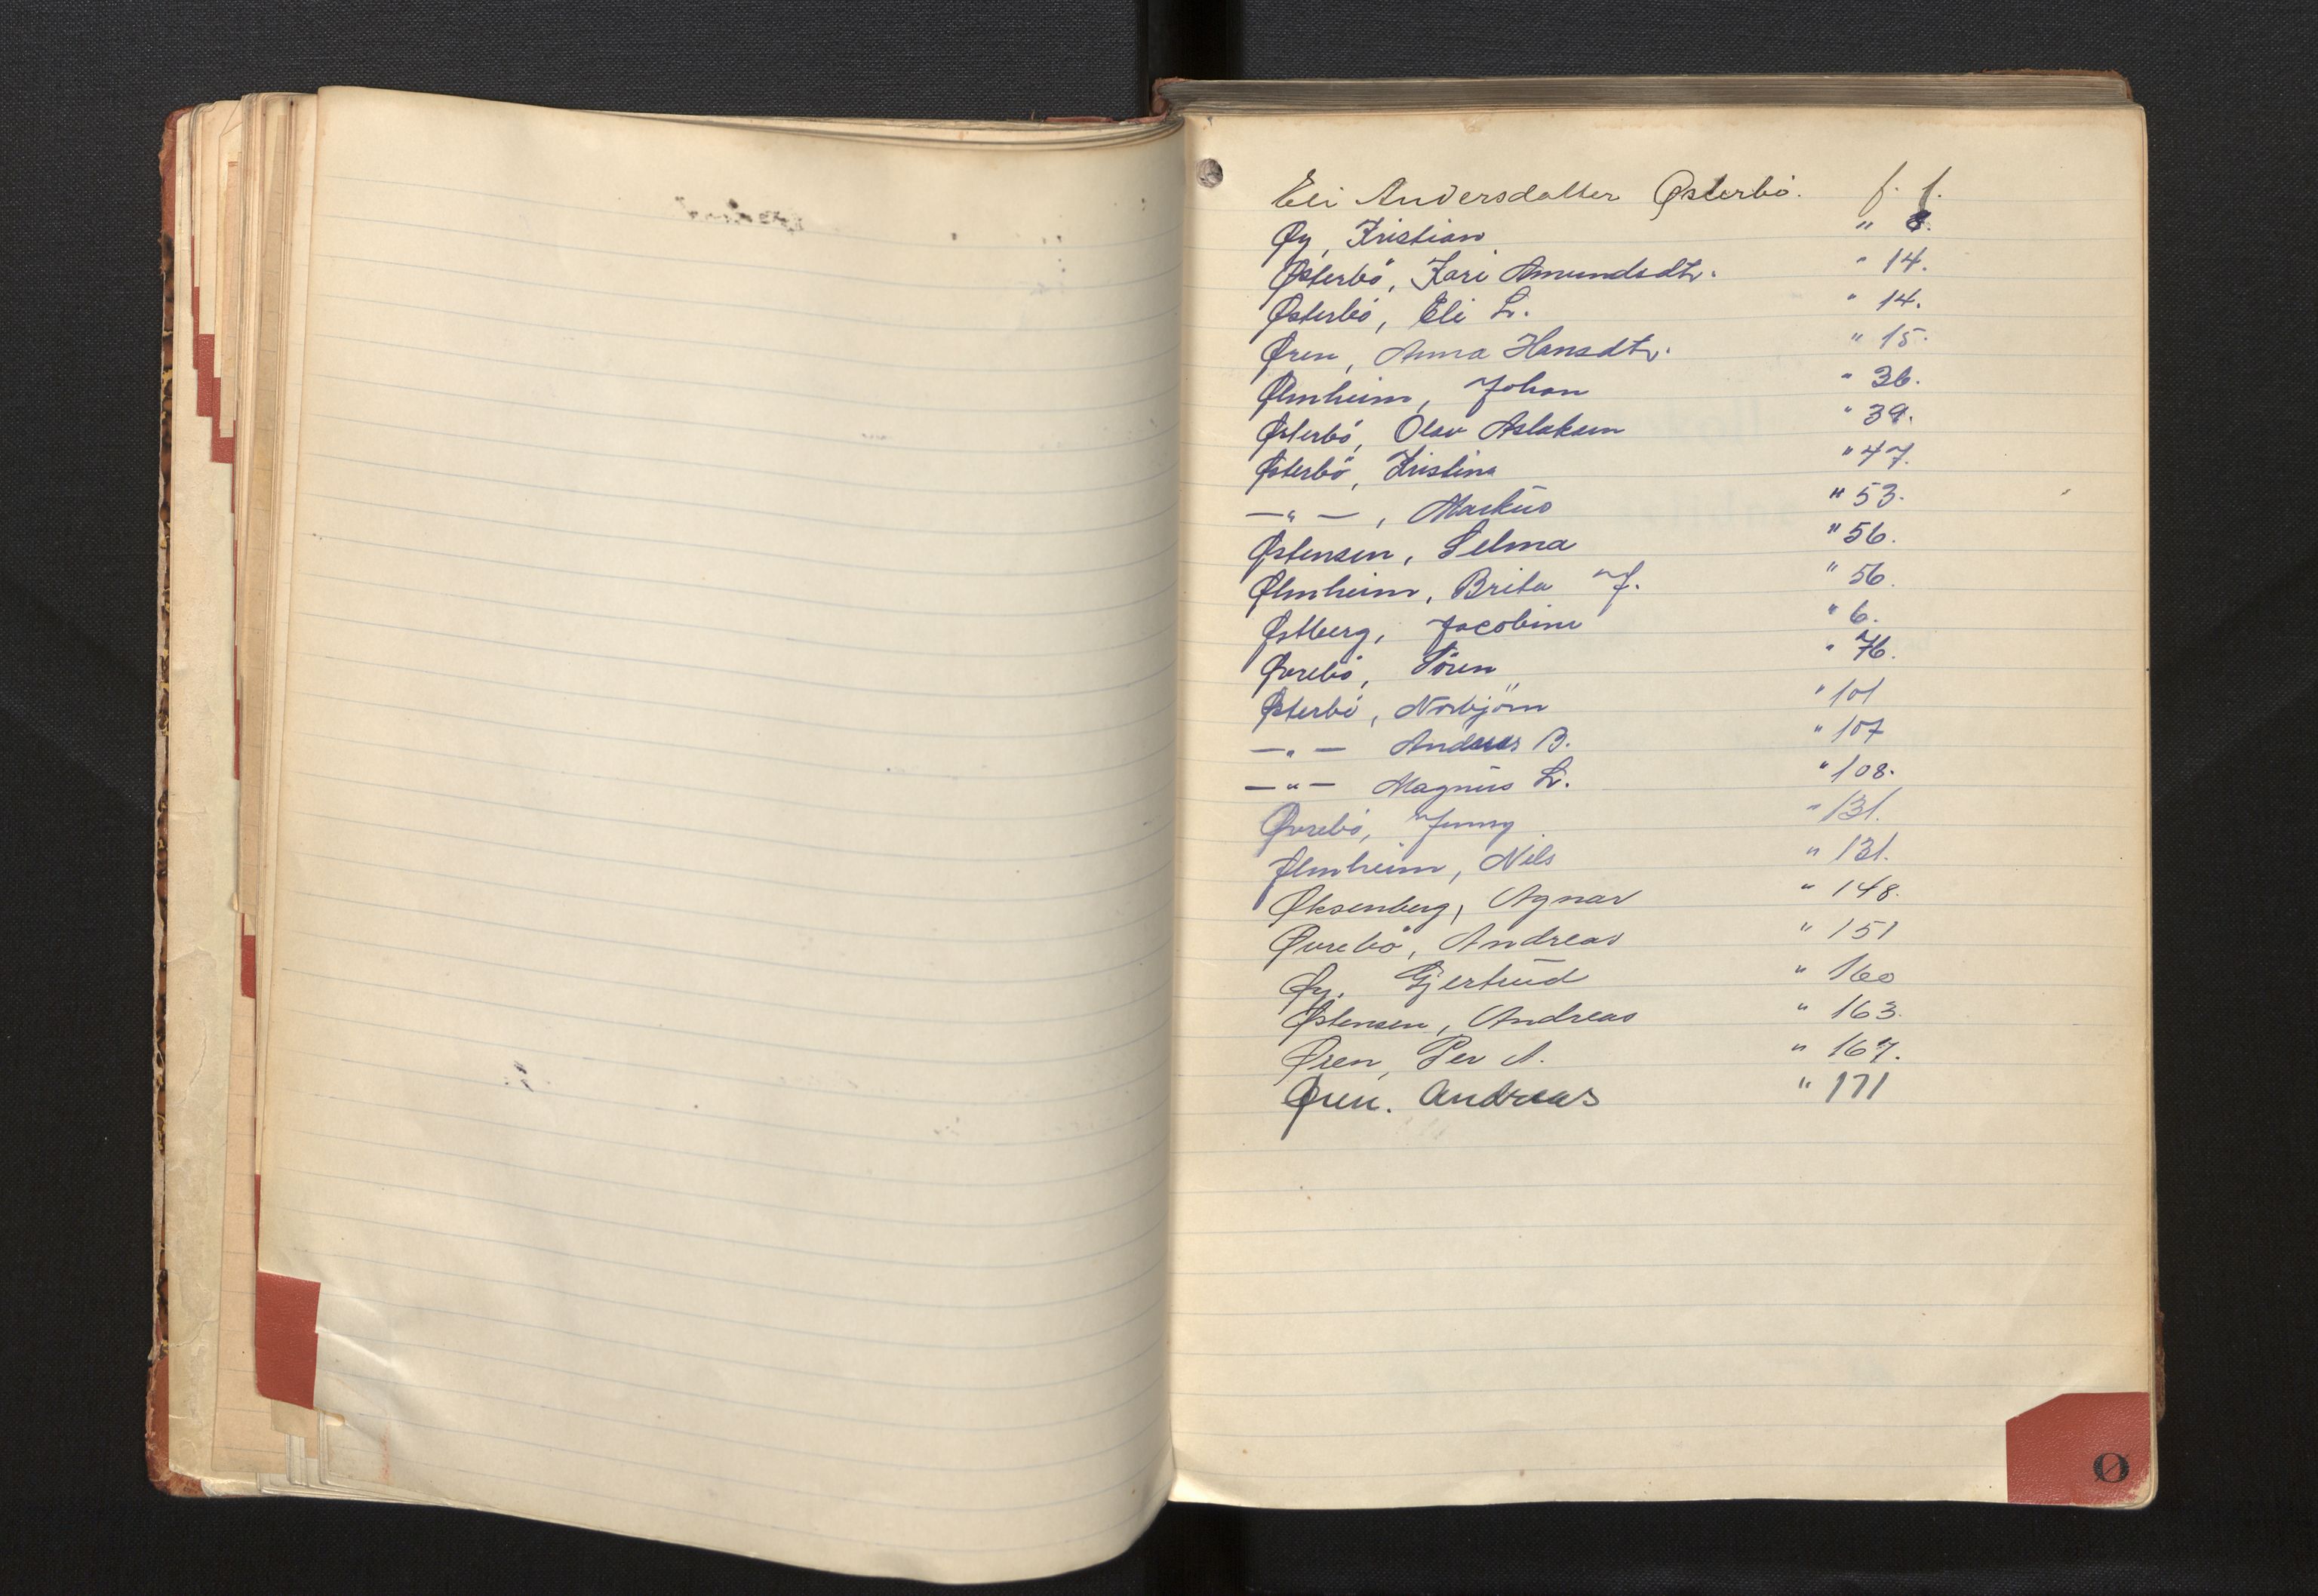 Eli Andersdatter Østerbö. f. 1.
Øy, Kristian " 8.
Østerbö, Kari Amundsdtr. " 14.
Østerbö, Eli L. " 14.
Øren, Anna Hansdtr. " 15.
Ølmheim, Johan " 36.
Østerbö, Olav Aslaksen " 39.
Østerbö, Kristina " 47.
—"—, Markus " 53.
Østensen, Selma " 56.
Ølmheim, Brita J. " 56.
Østberg, Jacobine " 6.
Øvrebö, Sören " 76.
Østerbö, Norbjörn " 101
—"— Andreas B. " 107
—"— Magnus L. " 108.
Øvrebö, Jenny " 131.
Ølmheim, Nils " 131.
Øksenberg, Agnar " 148.
Øvrebö, Andreas " 151
Øy, Gjertrud " 160
Østensen, Andreas " 163.
Øren, Per A. " 167.
Øren. Andreas " 171
Ø